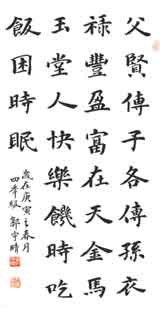 父賢傳子各傳孫衣
祿豐盈富在天金馬
玉堂人快樂饑時吃
飯困時眠
歲在庚寅之春月
四年級 宇晴